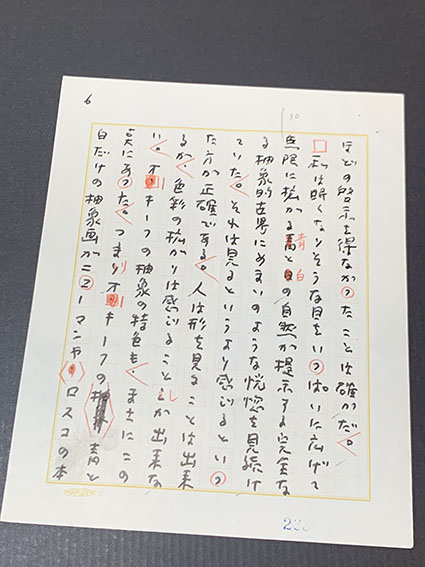 6
10
ほどの啓示を得なかったことは確かだ。
私は眠くなりそうな目をいっぱいに広げて
無限に拡がる青と白の自然が提示する完全な
る抽象的世界にめまいのような恍惚を見続け
ていた。それは見るというより感じるといっ
た方が正確である。人は形を見ることは出来
るが、色彩の拡がりは感じることしか出来な
い。オキーフの抽象の特色も、まさにこの
点にあった。つまりオキーフの 青と
白だけの抽象画がニューマンやロスコの本
青 白
り